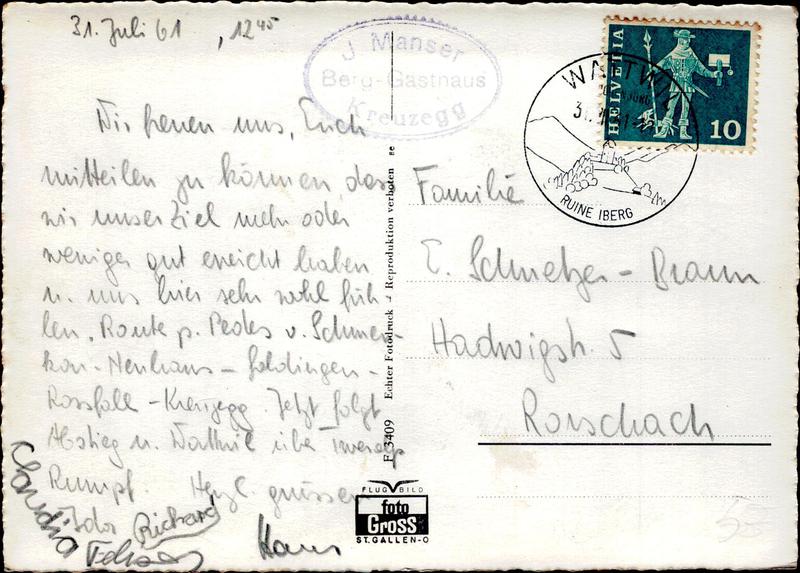 31. Juli 61 , 12 45
J. Manser
Berg-Gasthaus
Kreuzegg
Wir freuen uns, Euch
mitteilen zu können, dass
wir unser Ziel mehr oder
weniger gut erreicht haben
u. uns hier sehr wohl füh-
len. Route p. Pedes v. Schmeri-
kon-Neuhaus - Goldingen -
Rossfall - Kreuzegg. Jetzt folgt
Abstieg n. Wattwil über
Rumpf. Herzl. grüssen
Claudia
Richard
Hans
Echter Fotodruck - Reproduktion verboten
F 3409
FLUGBILD
foto
Gross
ST. GALLEN-O
HELVETIA
10
WATTWIL
RUINE IBERG
Familie
E. Schmetzer-Braun
Hadwigstr. 5
Rorschach